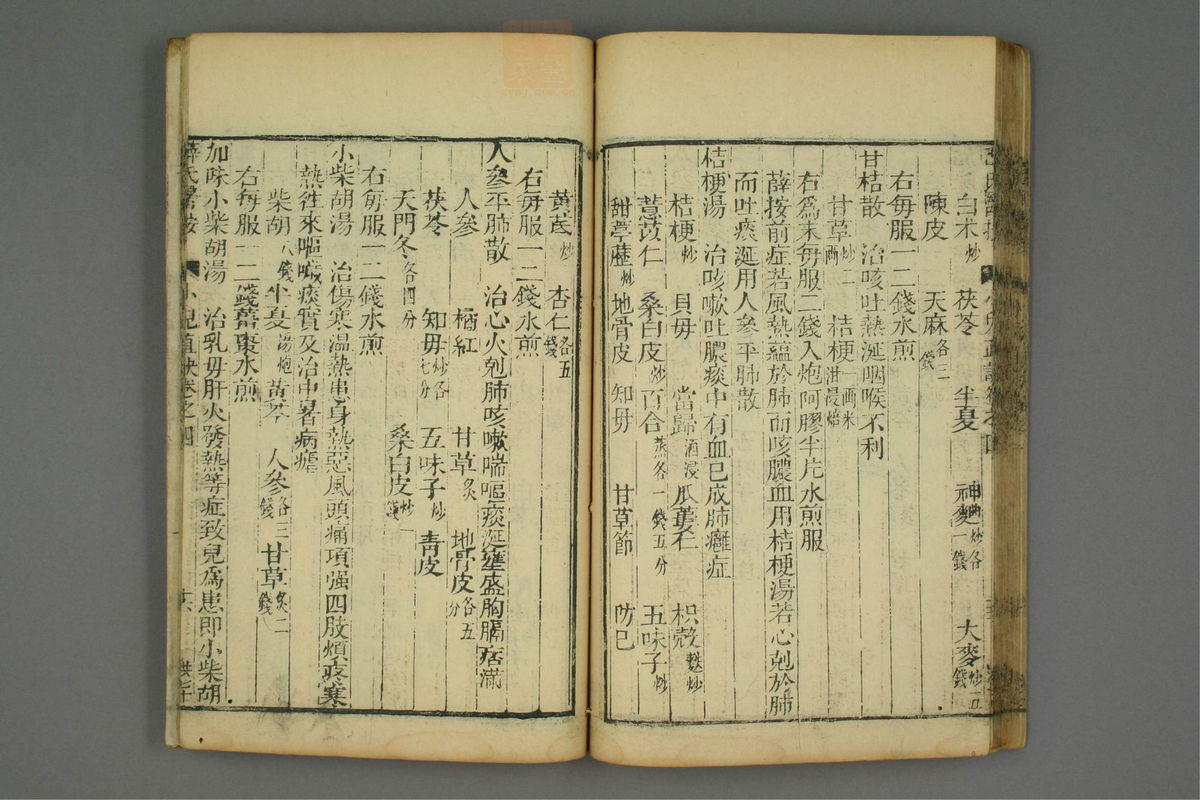 白朮炒 茯苓 半夏 神麯炒各一錢 大麥炒一
陳皮 天麻各二錢
右每服一二錢水煎
甘桔散 治咳吐熱涎咽喉不利
甘草炒二兩 桔梗一兩米泔浸焙
右爲末每服二錢入炮阿膠半片水煎服
薛按前症若風熱蘊於肺而咳膿血用桔梗湯若心剋於肺
而吐痰涎用人參平肺散
桔梗湯 治咳嗽吐膿痰中有血已成肺癰症
桔梗炒 貝母 當歸酒浸 瓜蔞仁 枳殼麩炒
薏苡仁 桑白皮炒 百合蒸各一錢五分 五味子炒
甜葶藶炒 地骨皮 知母 甘草節 防已
黃芪炒 杏仁各五錢
右每服一二錢水煎
人參平肺散 治心火剋肺咳嗽喘嘔痰涎壅盛胸膈痞滿
人參 橘紅 甘草炙 地骨皮各五分
茯苓 知母炒各七分 五味子炒 青皮
天門冬各四分 桑白皮炒一錢
右每服一二錢水煎
小柴胡湯 治傷寒温熱患身熱惡風頭痛項强四肢煩疼寒
熱徃來嘔噦痰實及治中暑病瘧
柴胡八錢 半夏湯炮 黃芩 人參各三錢 甘草炙二錢
右每服一二錢薑棗水煎
加味小柴胡湯 治乳母肝火發熱等症致兒爲患即小柴胡
薛氏醫按 小兒直訣卷之四